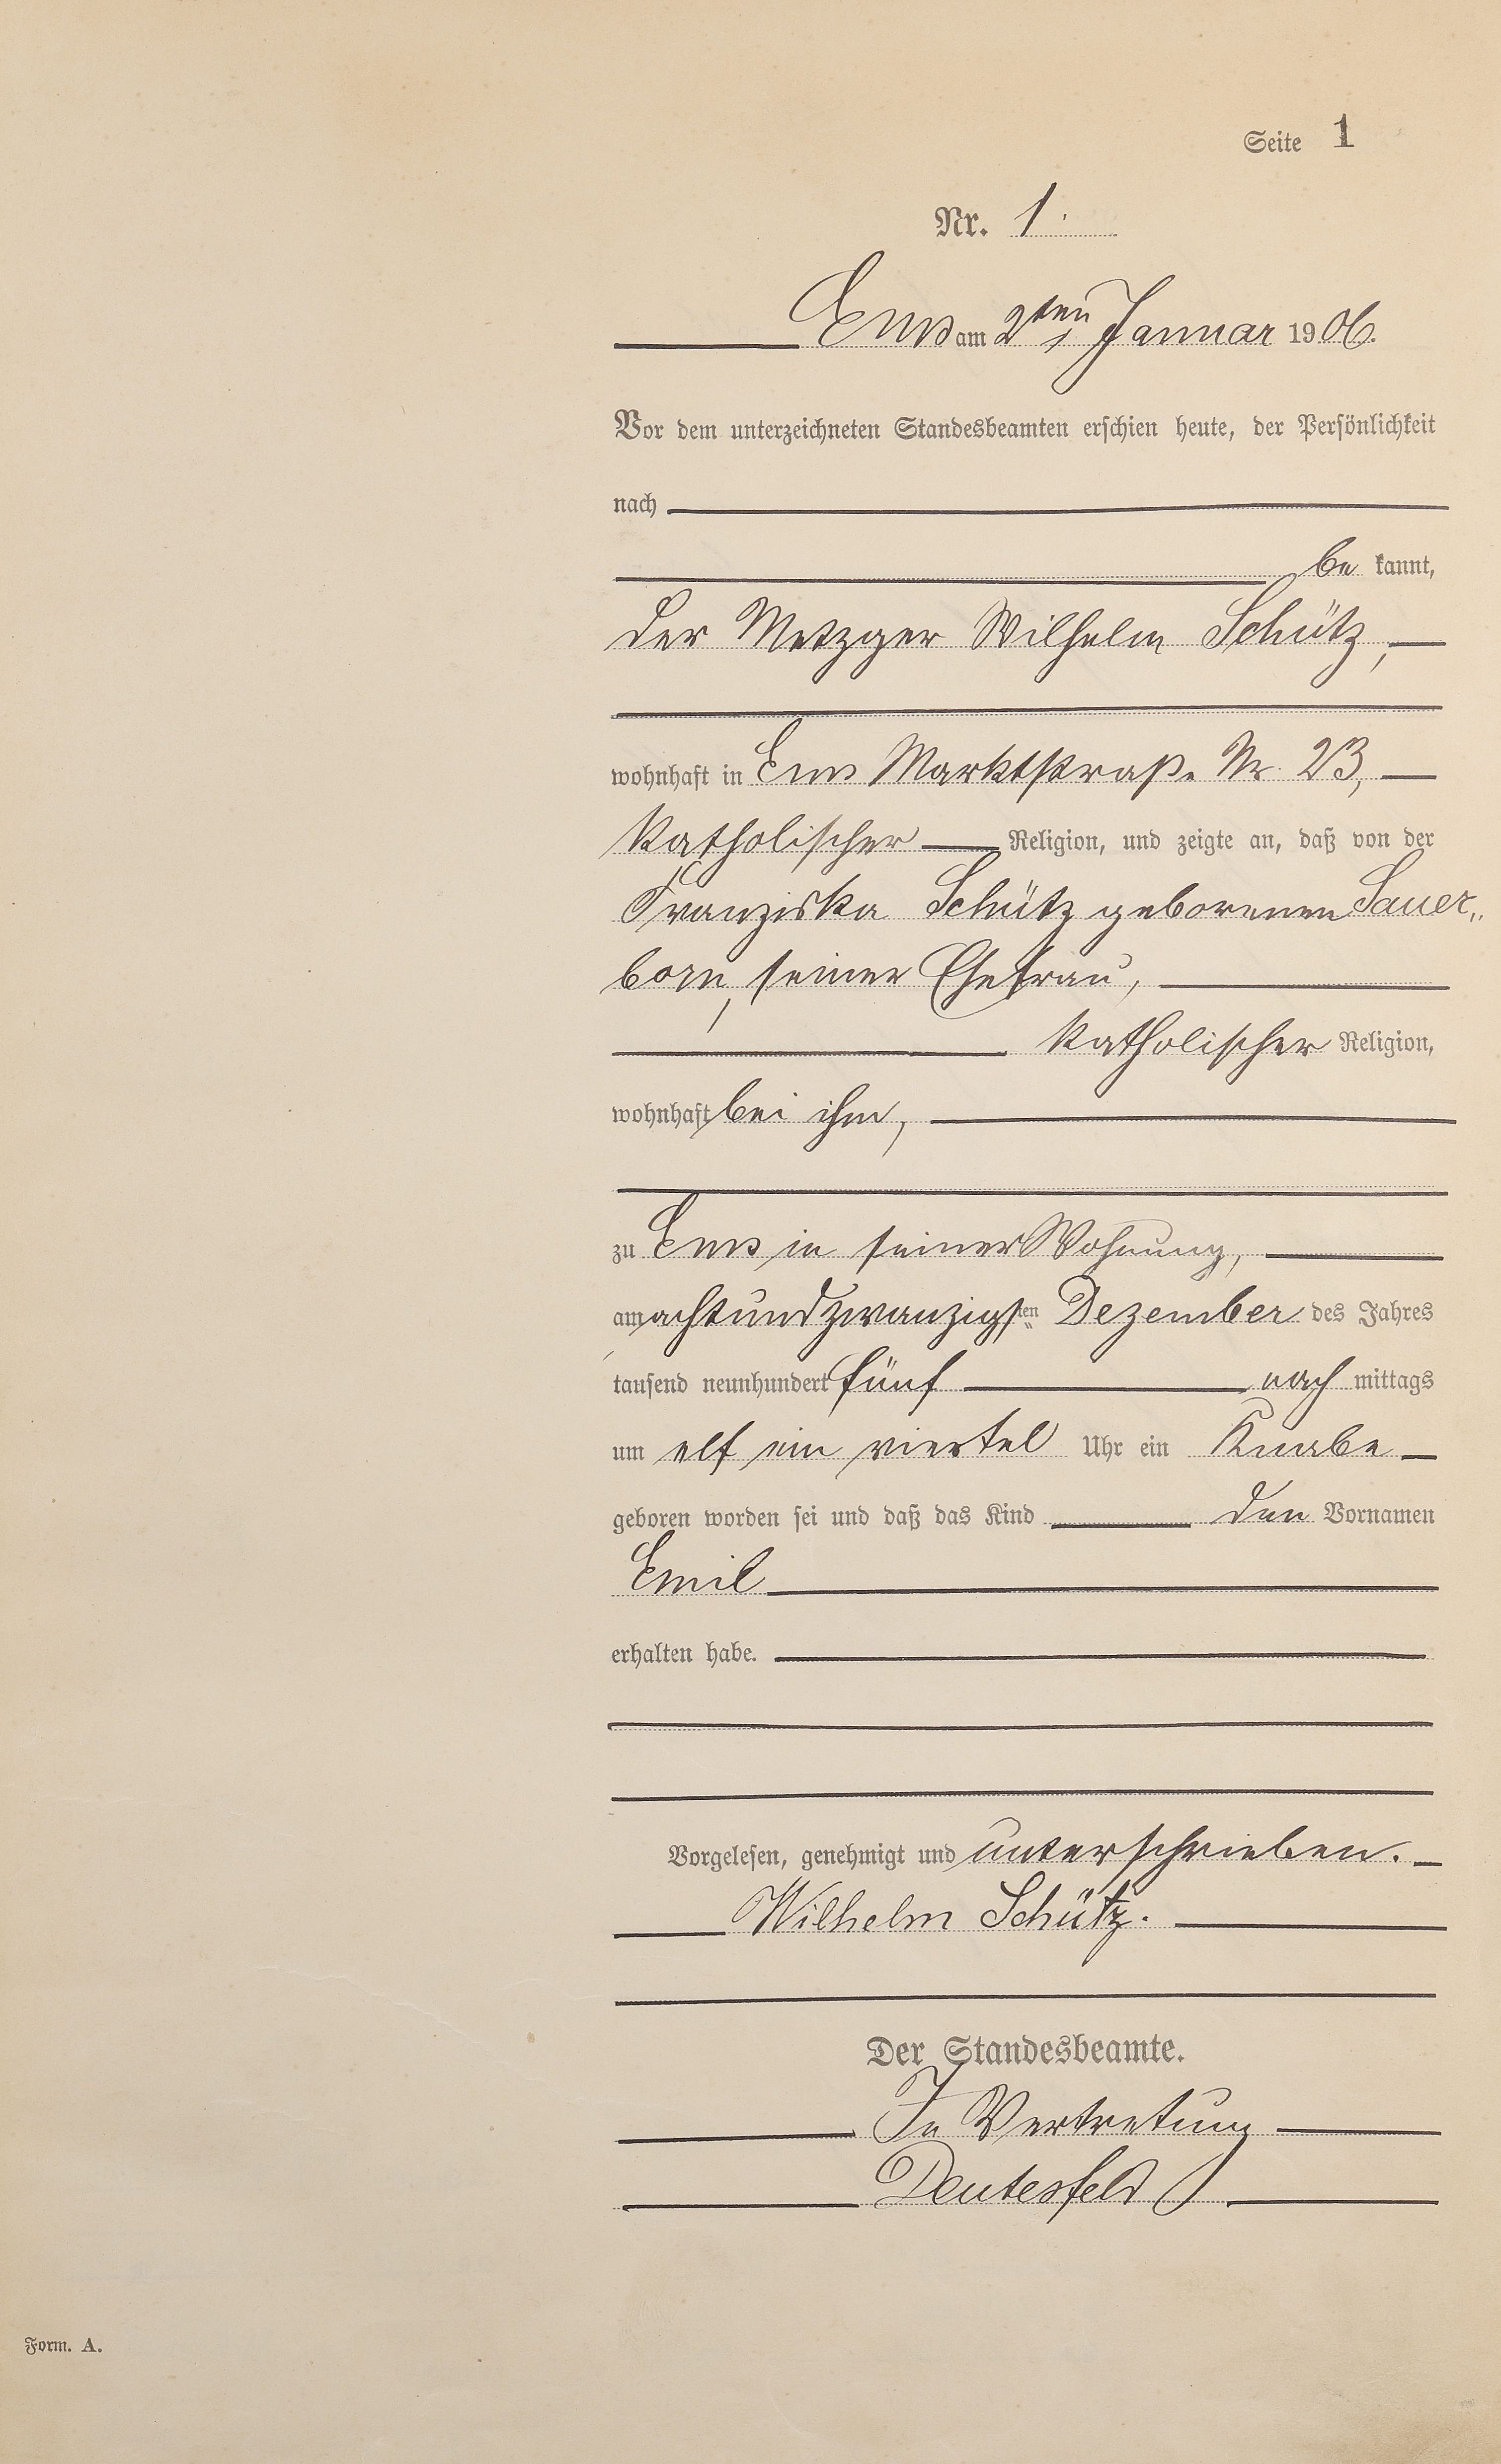 Seite 1
Nr. 1.
Ems am 2ten Januar 1906.
Vor dem unterzeichneten Standesbeamten erschien heute, der Persönlichkeit
nach
be kannt,
der Metzger Wilhelm Schütz,
wohnhaft in Ems Marktstraße Nr. 23,
katholischer Religion, und zeigte an, daß von der
Franziska Schütz geborenen Sauer„
born, seiner Ehefrau,
katholischer Religion,
wohnhaft bei ihm,
zu Ems in seiner Wohnung,
am achtundzwanzigsten Dezember des Jahres
tausend neunhundert fünf nach mittags
um elf ein viertel Uhr ein Knabe
geboren worden sei und daß das Kind den Vornamen
Emil
erhalten habe.
Vorgelesen, genehmigt und unterschrieben.
Wilhelm Schütz.
Der Standesbeamte.
In Vertretung
Deutesfeld
Form. A.